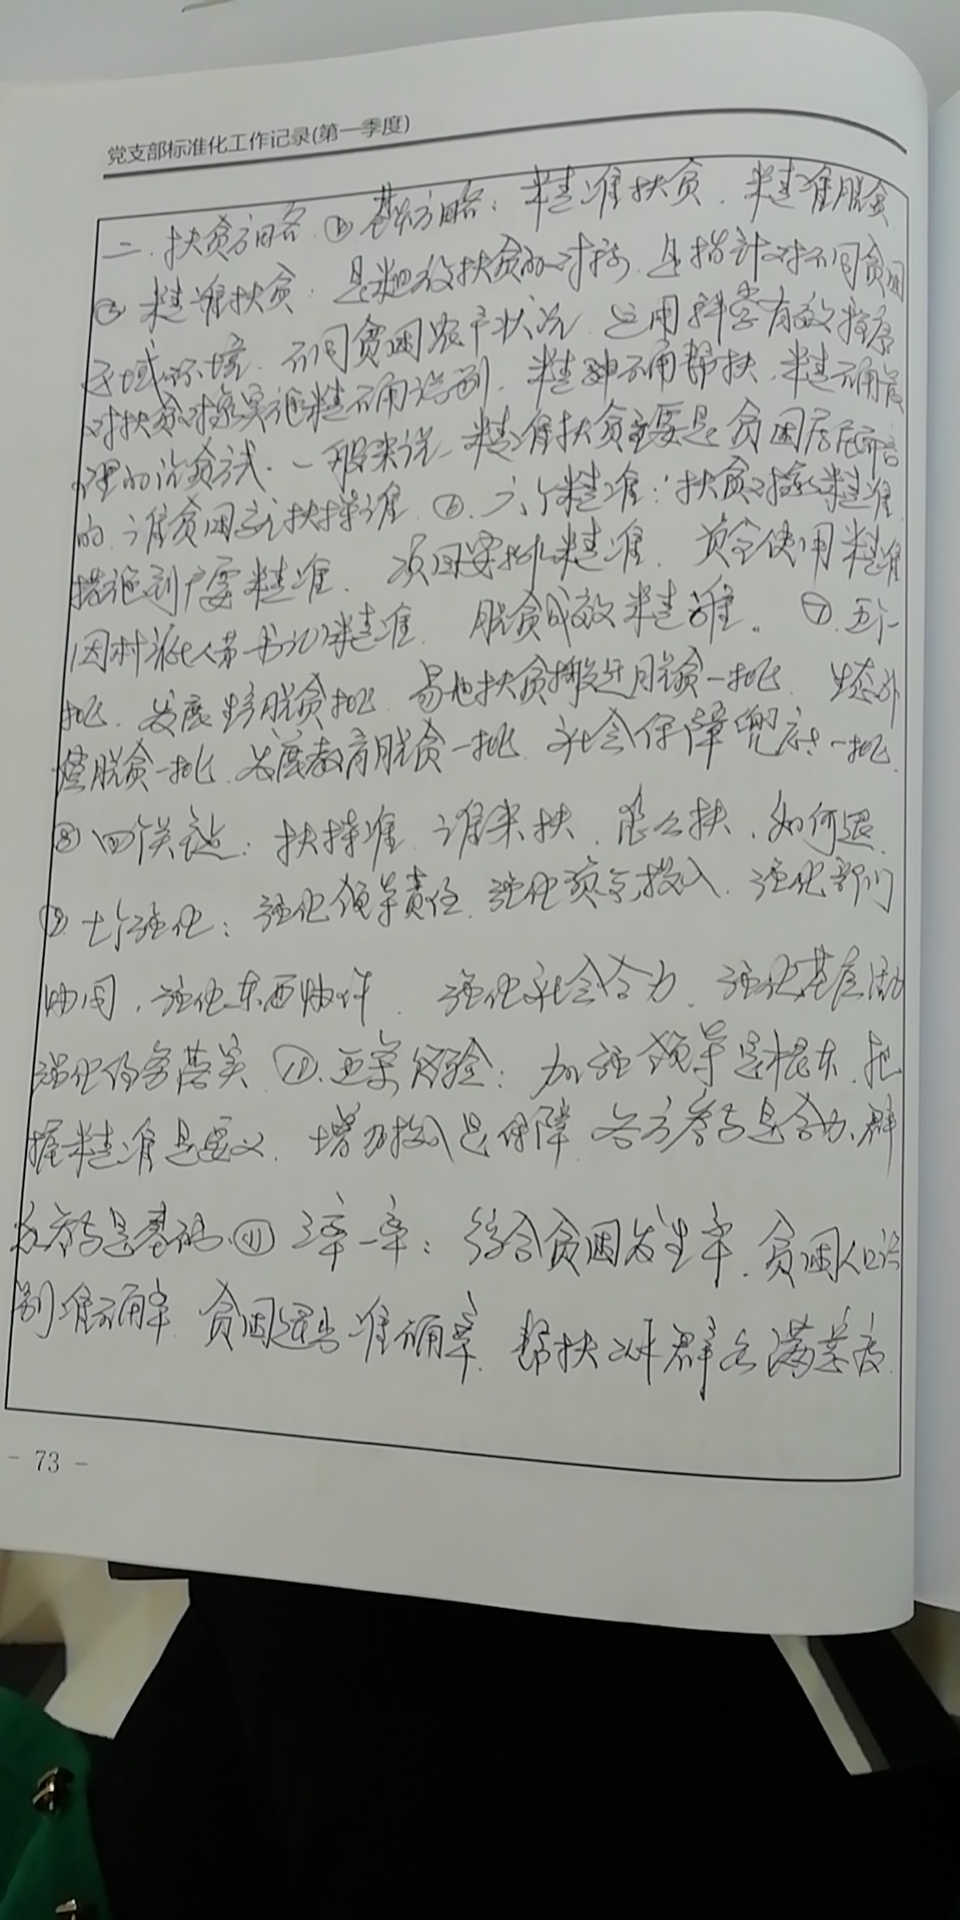 党支部标准化工作记录(第一季度)
二、扶贫方略 ① 基本方略：精准扶贫、精准脱贫
② 精准扶贫：是粗放扶贫的对称，是指针对不同贫困
区域环境、不同贫困农户状况，运用科学有效程序
对扶贫对象实施精确识别、精确帮扶、精确管
理的治贫方式。一般来说，精准扶贫主要是贫困居民而言
的，谁贫困就扶持谁。⑥ 六个精准：扶贫对象精准
措施到户要精准、项目安排精准、资金使用精准
因村派人第一书记精准、脱贫成效精准。⑦ 五个一
批、发展生产脱贫一批、易地扶贫搬迁脱贫一批、生态补
偿脱贫一批、发展教育脱贫一批、社会保障兜底一批
⑧ 四个关键：扶持谁、谁来扶、怎么扶、如何退
七个强化：强化领导责任、强化资金投入、强化部门
协同、强化东西协作、强化社会合力、强化基层活
强化任务落实 五条经验：加强领导是根本、把
握精准是要义、增加投入是保障、各方参与是合力、群
众参与是基础 ⑪ 三率一率：综合贫困发生率、贫困人口识
别准确率、贫困退出准确率、帮扶工作群众满意度
- 73 -